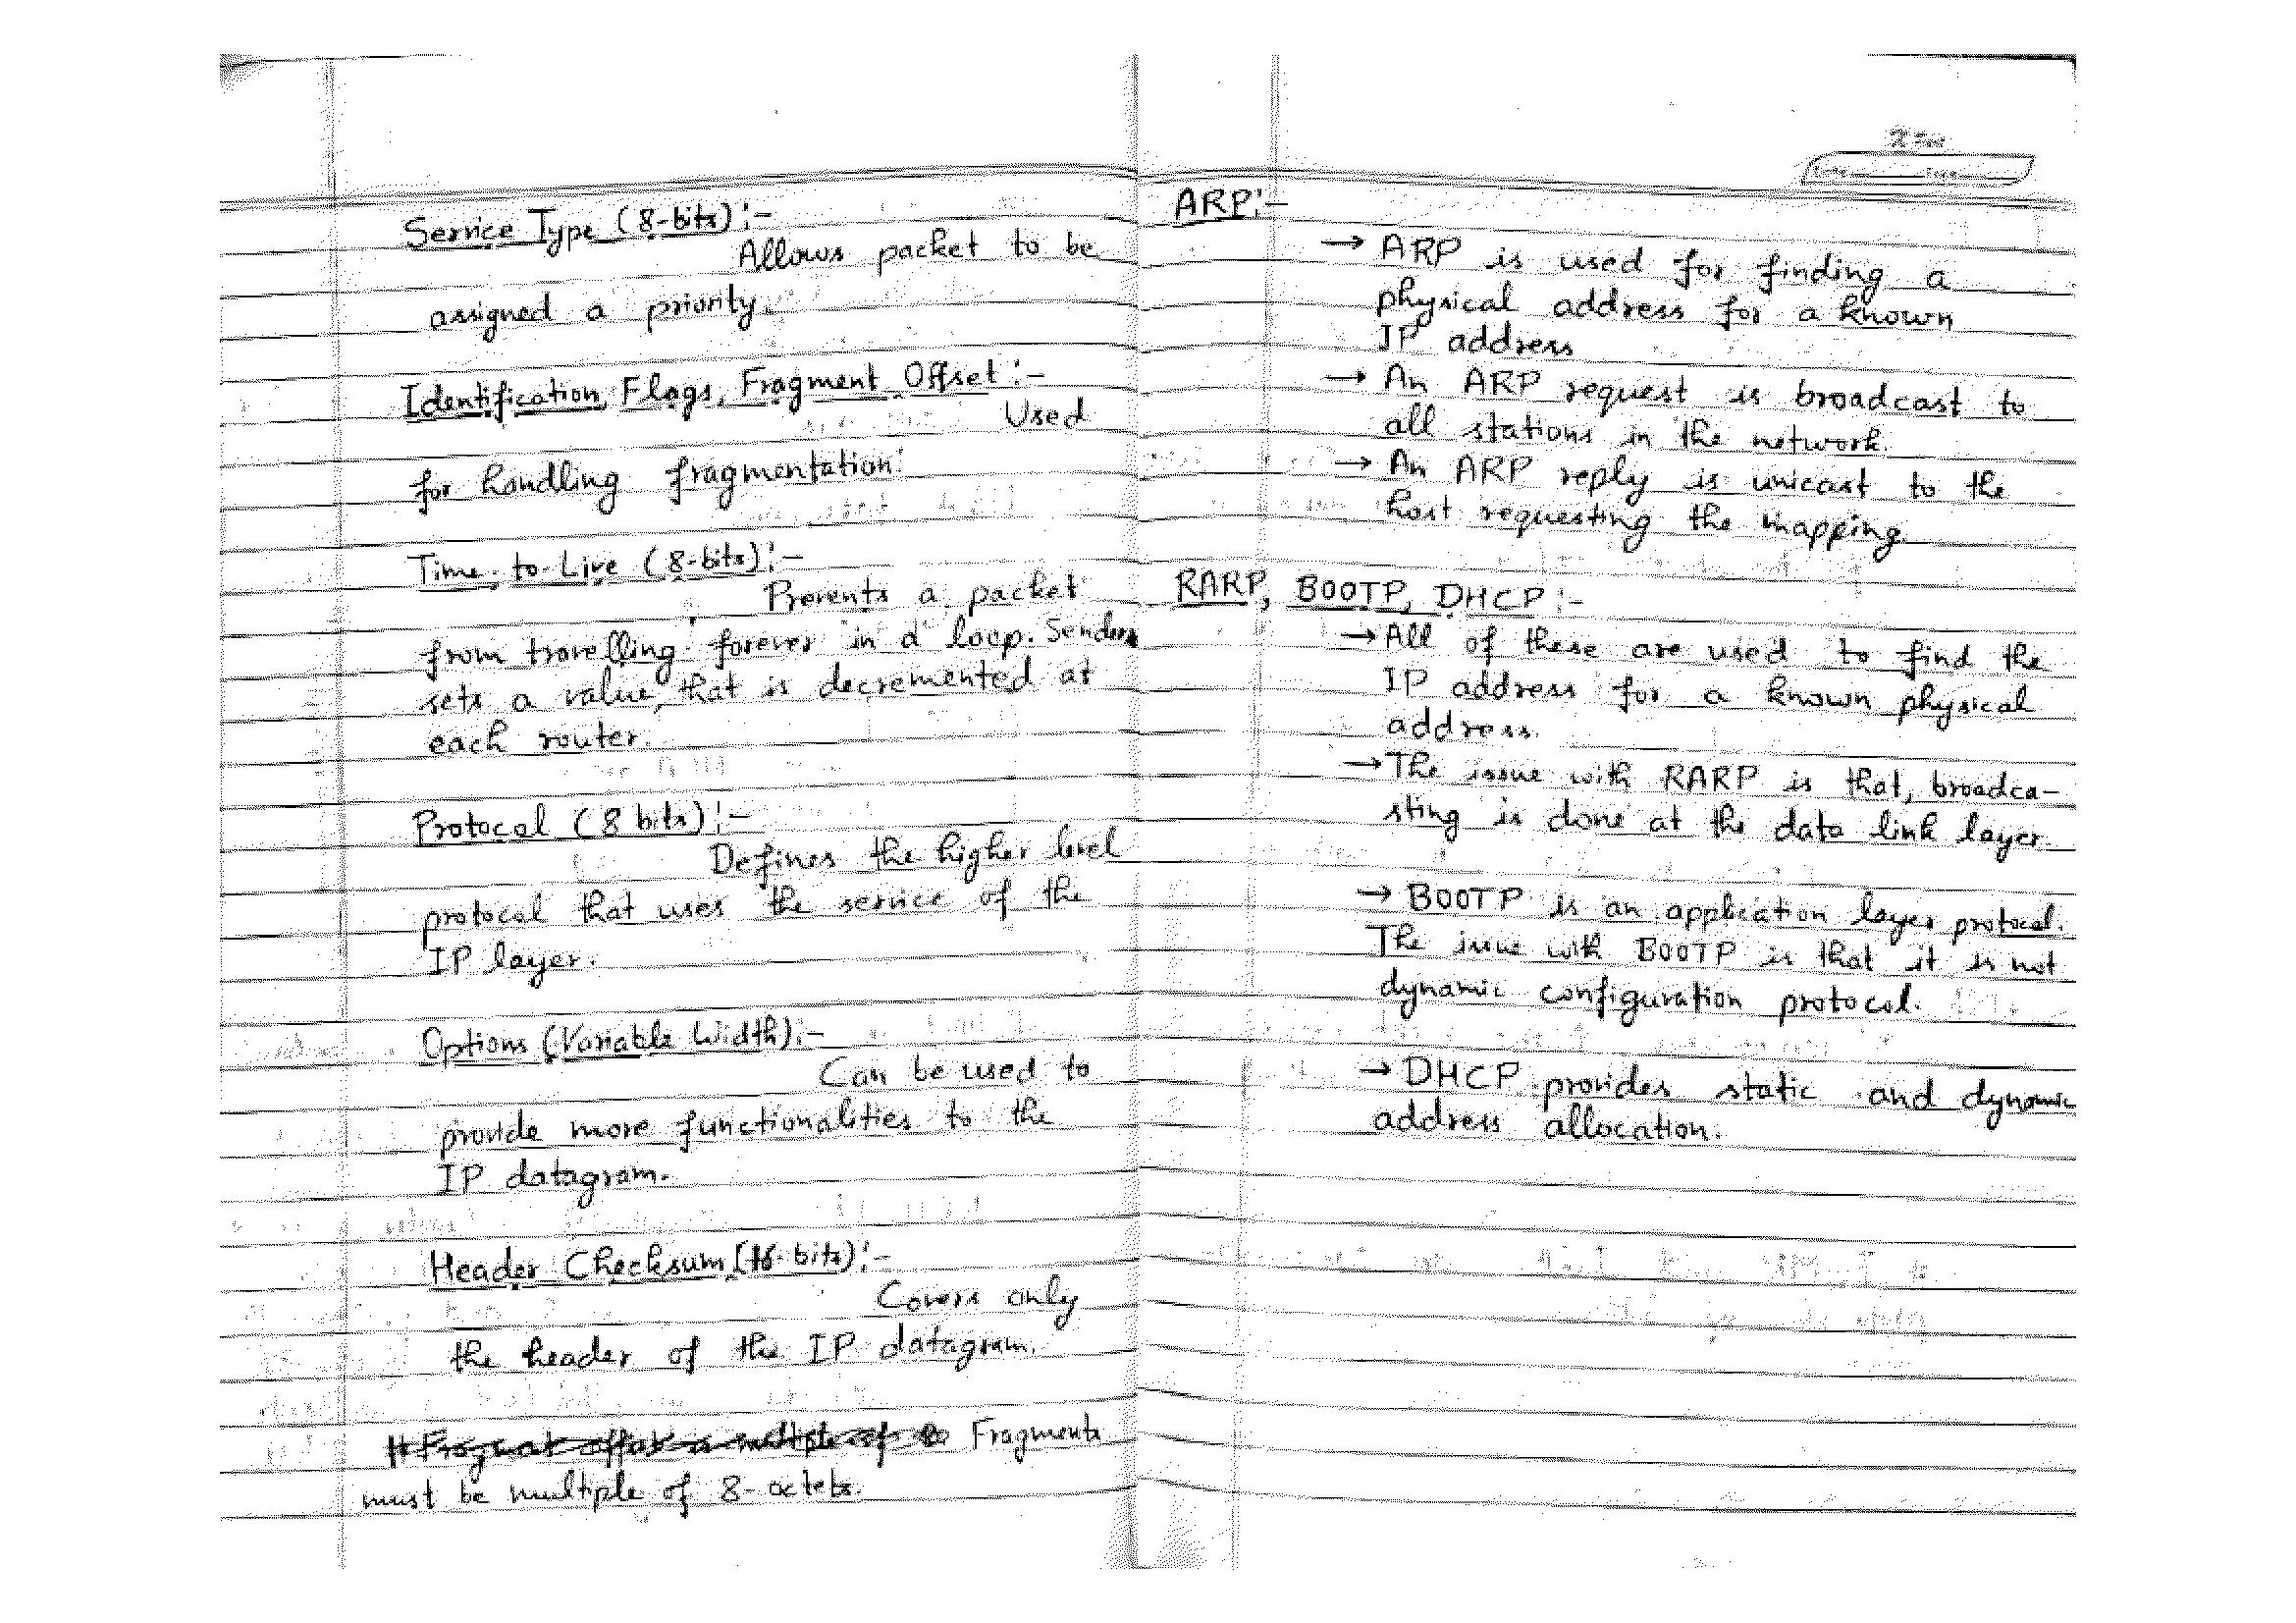 Service Type (8-bits):-
Allows packet to be
assigned a priority.
Identification, Flags, Fragment Offset:-
Used
for handling fragmentation.
Time-to-Live (8-bits):-
Prevents a packet
from travelling forever in a loop. Sender
sets a value, that is decremented at
each router.
Protocol (8 bits):-
Defines the higher level
protocol that uses the service of the
IP layer.
Options (Variable Width):-
Can be used to
provide more functionalities to the
IP datagram.
Header Checksum (16-bits):-
Covers only
the header of the IP datagram.
Fragments
must be multiple of 8-octets.
ARP:-
→ ARP is used for finding a
physical address for a known
IP address
→ An ARP request is broadcast to
all stations in the network.
→ An ARP reply is unicast to the
host requesting the mapping.
RARP, BOOTP, DHCP:-
→ All of these are used to find the
IP address for a known physical
address.
→ The issue with RARP is that, broadca-
sting is done at the data link layer.
→ BOOTP is an application layer protocol.
The issue with BOOTP is that it is not
dynamic configuration protocol.
→ DHCP provides static and dynamic
address allocation.